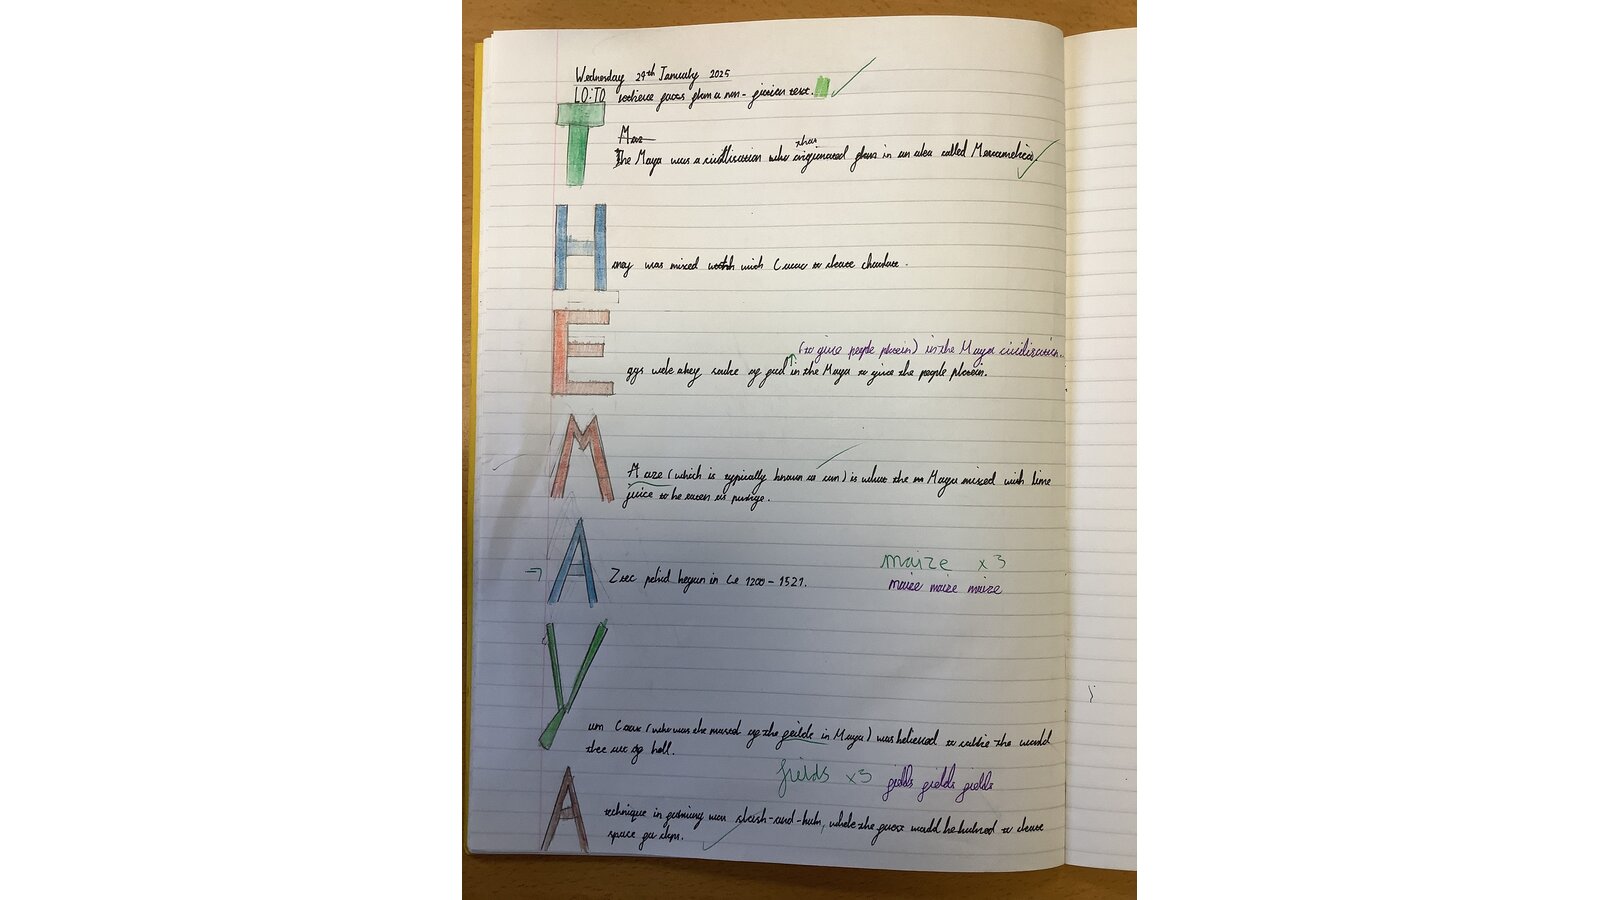 Wednesday 29th January 2025
LO: TO retrieve facts from a non-fiction text.
T
Maz
that
The Maya was a civilisation who originated from in an area called Mesoamerica.
H
oney was mixed with Cacao to create chocolate.
E
(to give people protein) in the Maya civilisation.
ggs were a key source of food in the Maya to give the people protein.
M
Aize (which is typically known as corn) is what the m Maya mixed with lime
juice to be eaten as porrige.
A
maize x3
Ztec period began in Ce 1200 - 1521.
maize maize maize
Y
um Caax (who was the of the feilds in Maya) was believed to the world
tree out of hell.
fields x3 fields fields fields
A
technique in farming was slash-and-burn, where the forest would be burned to create
space for crops.